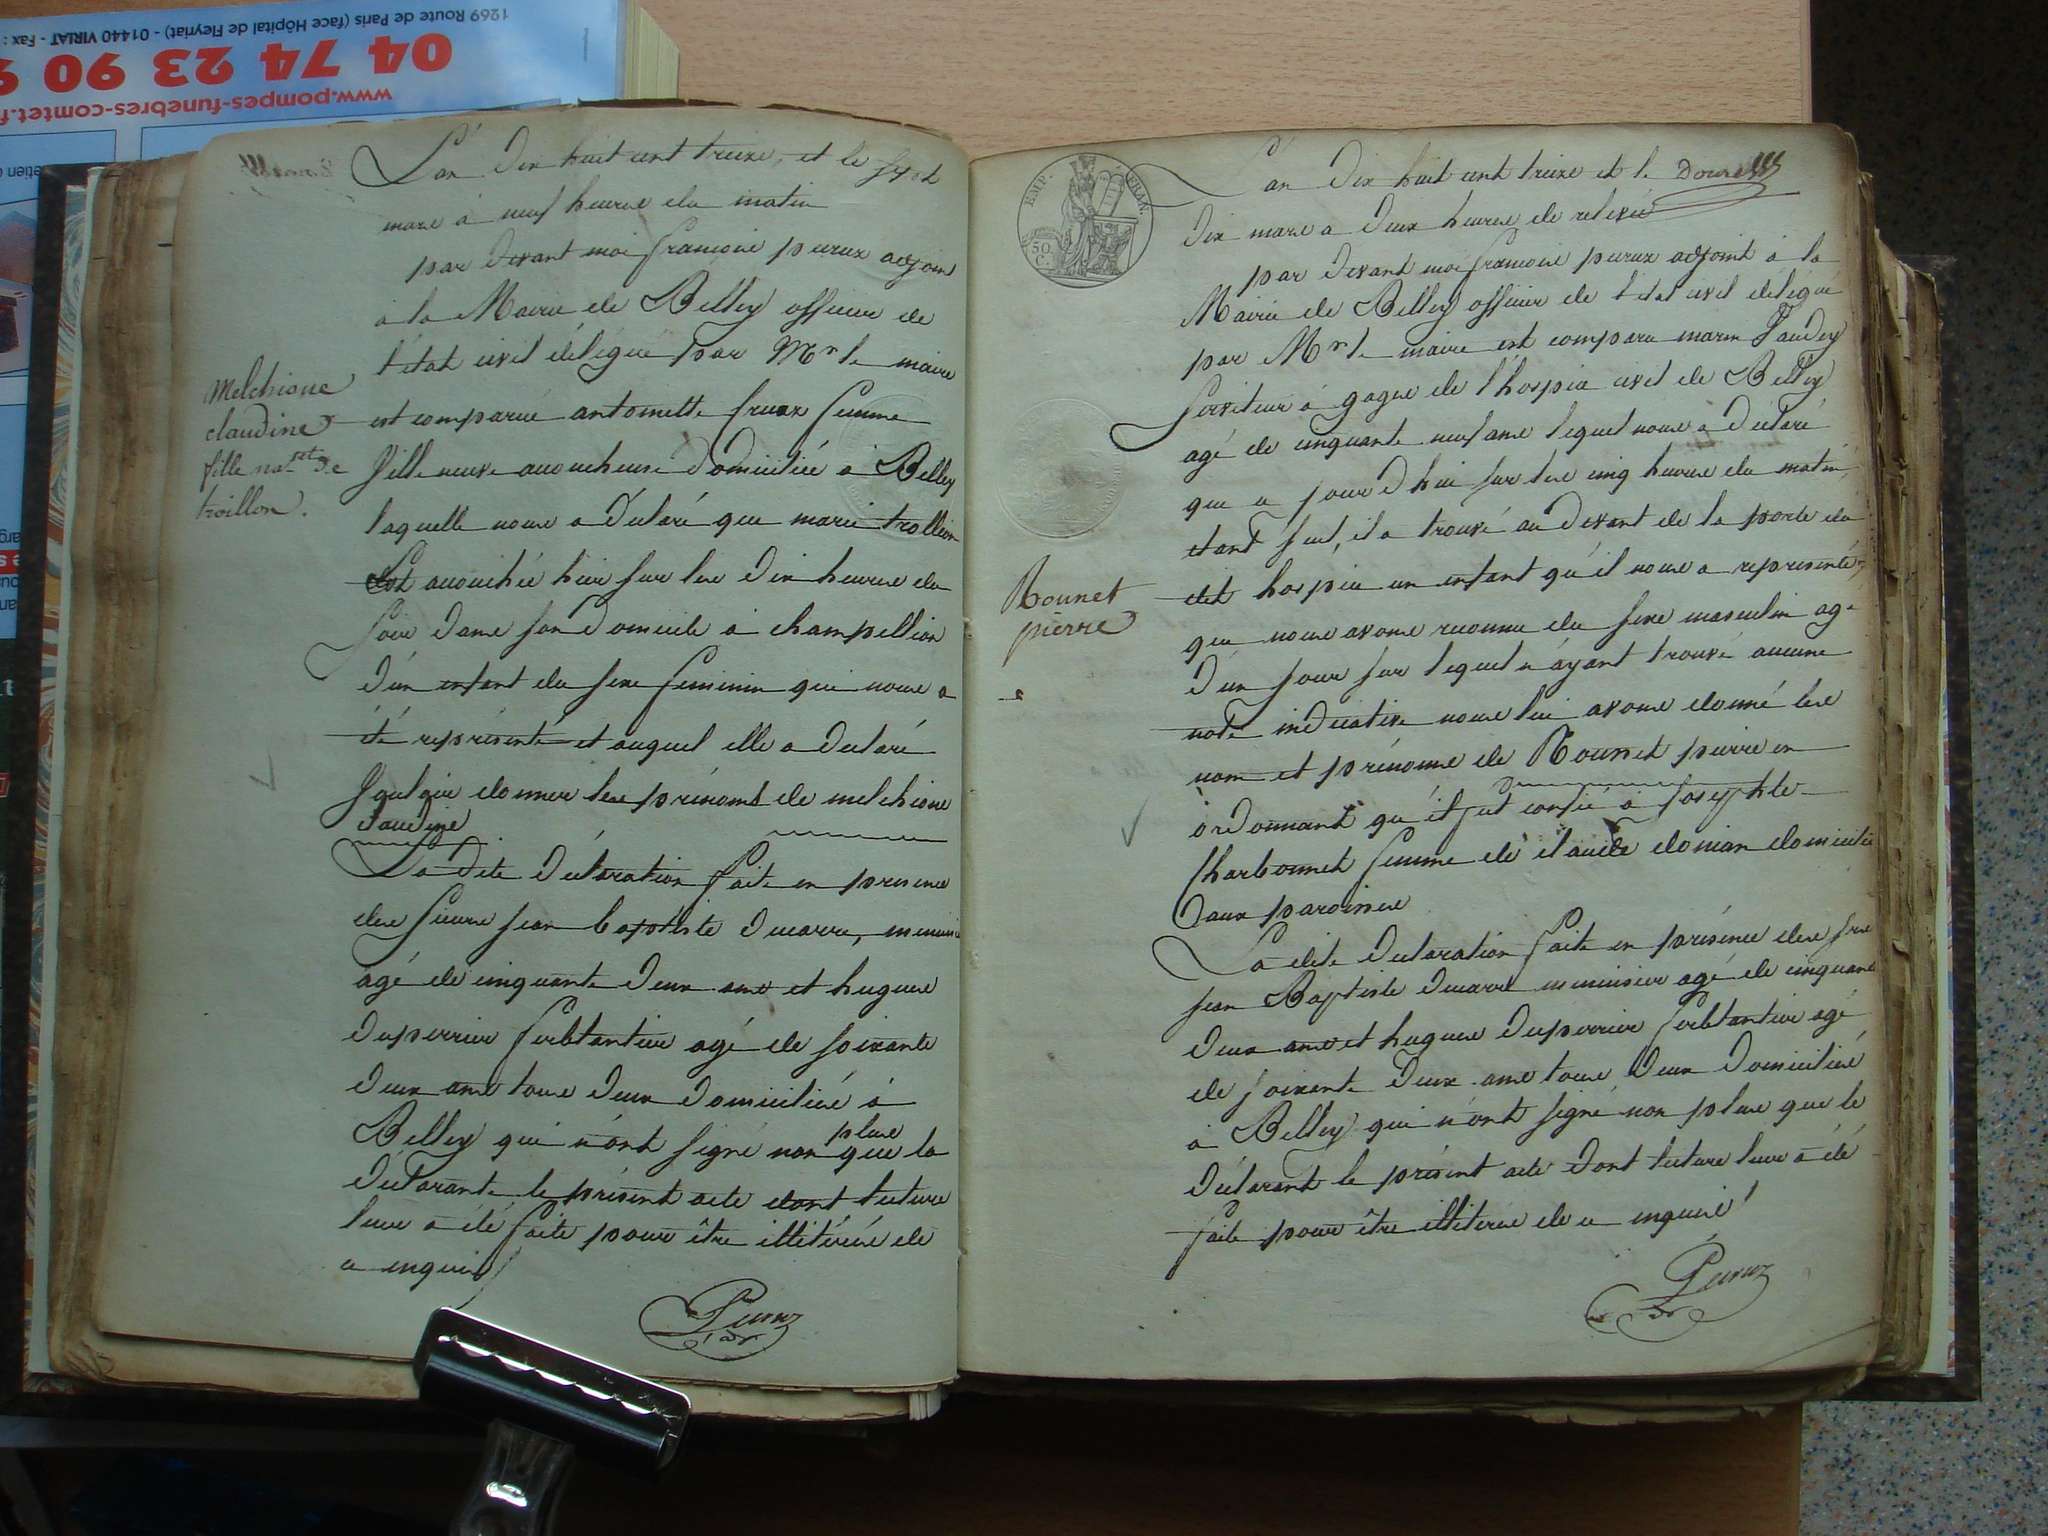 1269 Route de Paris (face Hôpital de Fleyriat) - 01440 VIRIAT - Fax :
04 74 23 90 9
www.pompes-funebres-comtet.f
L'an dix huit cent treize, et le sept
mars à neuf heures du matin
par devant moi françois peroux adjoint
à la Mairie de Belley officier de
l'état civil délégué par Mr le maire
est comparue antoinette femme
fille veuve accoucheuse domiciliée à Belley
laquelle nous a déclaré que marie trollion
Est accouchée hier sur les dix heures du
soir dans son domicile à champellion
d'un enfant du sexe feminin qui nous a
été représenté et auquel elle a déclaré
vouloir donner les prénoms de melchione
claudine
La dite déclaration faite en présence
des sieurs jean baptiste ducarre, menuisier
agé de cinquante deux ans et hugues
duperrier ferblantier agé de soixante
deux ans tous deux domiciliés à
Belley qui n'ont signé non plus que la
déclarante le présent acte dont lecture
leur a été faite pour être illitérés de
ce enquis
Melchione
claudine
fille natlle de
troillon.
EMP. FRAN.
50 C.
L'an dix huit cent treize et le Douze
dix mars a deux heures de relevée
par devant moi françois peroux adjoint à la
Mairie de Belley officier de l'état civil délégué
par Mr le maire est comparu marin Jaudey
serviteur à gages de l'hospice civil de Belley
agé de cinquante neuf ans lequel nous a déclaré
que ce jourd'hui sur les cinq heures du matin,
etant seul, il a trouvé au devant de la porte du
dit hospice un enfant qu'il nous a représenté,
que nous avons reconnu du sexe masculin agé
d'un jour sur lequel n'ayant trouvé aucune
note indicative nous lui avons donné les
nom et prénoms de Bounet pierre en
ordonnant qu'il fut confié à Josephte
Charbonnet femme de claude donian domiciliée
aux paroisses
La dite déclaration faite en présence des srs
jean Baptiste ducarre menuisier agé de cinquante
deux ans et hugues duperrier ferblantier agé
de soixante deux ans tous deux domiciliés
à Belley qui n'ont signé non plus que le
déclarant le présent acte dont lecture leur a été
faite pour être illitérés de ce enquis
Bounet
pierre